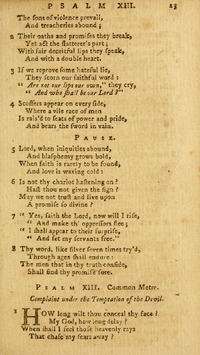 PSALM XIII. 23
The sons of violence prevail,
And treacheries abound;
2 Their oaths and promises they break,
Yet act the flatterer's part;
With fair deceitful lips they speak,
And with a double heart.
3 If we reprove some hateful lie,
They scorn our faithful word:
"Are not our lips our own," they cry,
"And who shall be our Lord?"
4 Scoffers appear on every side,
Where a vile race of men
Is rais'd to seats of power and pride,
And bears the sword in vain.
PAUSE.
5 Lord, when iniquities abound,
And blasphemy grows bold,
When faith is rarely to be found,
And love is waxing cold:
6 Is not thy chariot hastening on?
Hast thou not given the sign?
May we not trust and live upon
A promise so divine?
7 "Yes, saith the Lord, now will I rise,
"And make th' oppressors flee;
"I shall appear to their surprise,
"And set my servants free."
8 Thy word, like silver seven times try'd,
Through ages shall endure:
The men that in thy truth confide,
Shall find thy promise sure.
PSALM XIII. Common Metre.
Complaint under the Temptation of the Devil.
1 HOW long wilt thou conceal thy face?
My God, how long delay?
When shall I feel those heavenly rays
That chase my fears away?